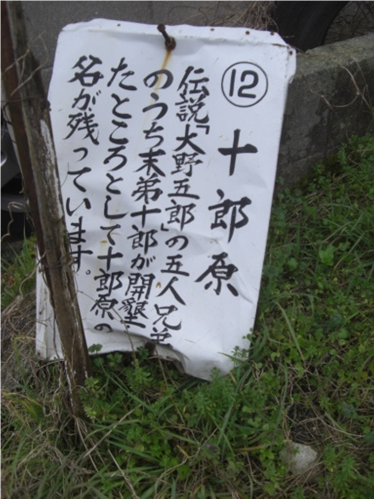 ⑫
十郎原
伝説「大野五郎」の五人兄弟
のうち末弟十郎が開墾し
たところとして十郎原の
名が残っています。